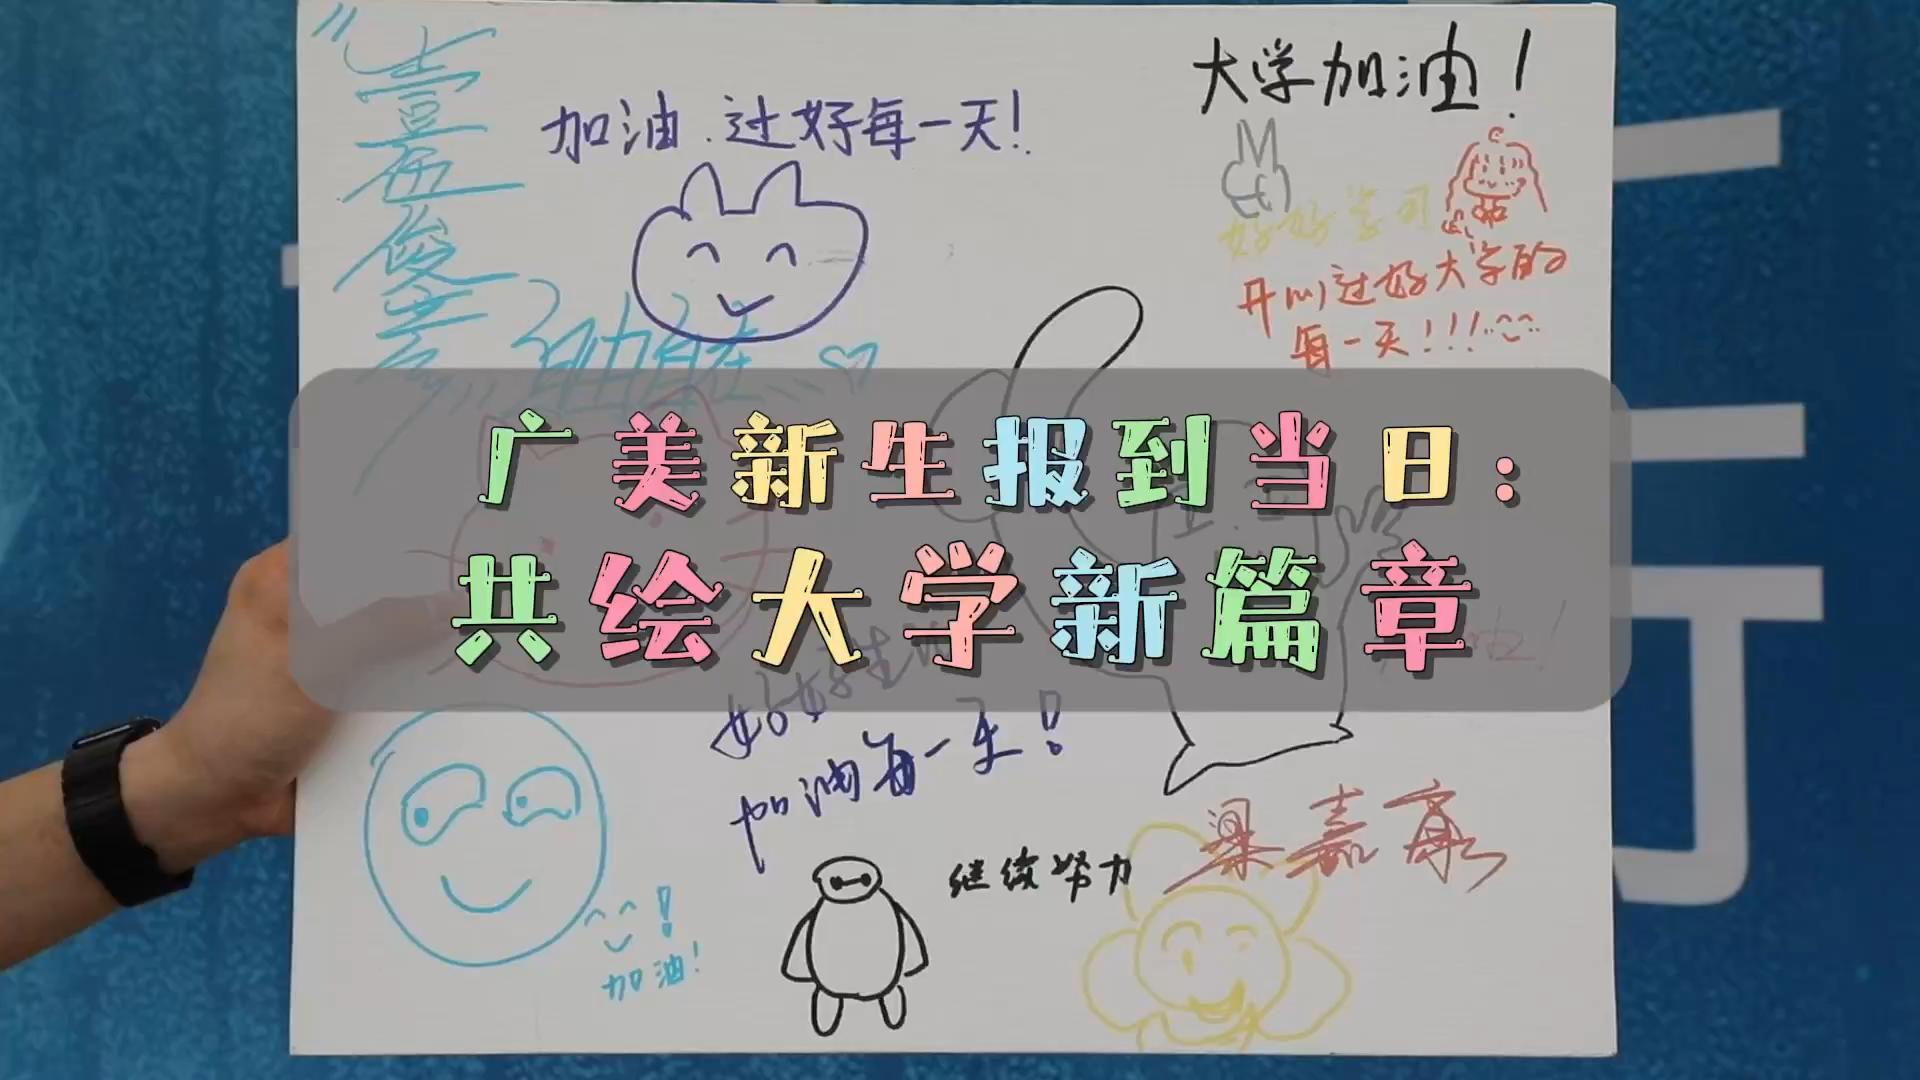 加油.过好每一天!
大学加油!
好好学习
开心过好大学的
每一天!!!
自由自在
广美新生报到当日:
共绘大学新篇章
好好生活
加油每一天!
继续努力
梁嘉豪
加油!